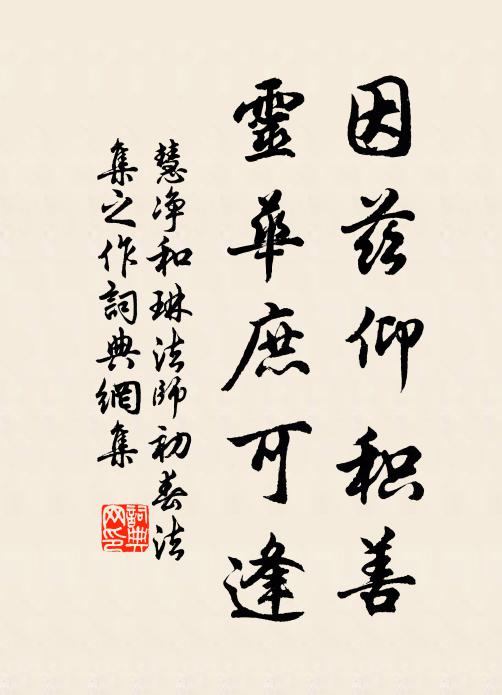 因兹仰积善
靈華庶可逢
慧净和琳法師初春法
集之作詞典網集
詞典网印